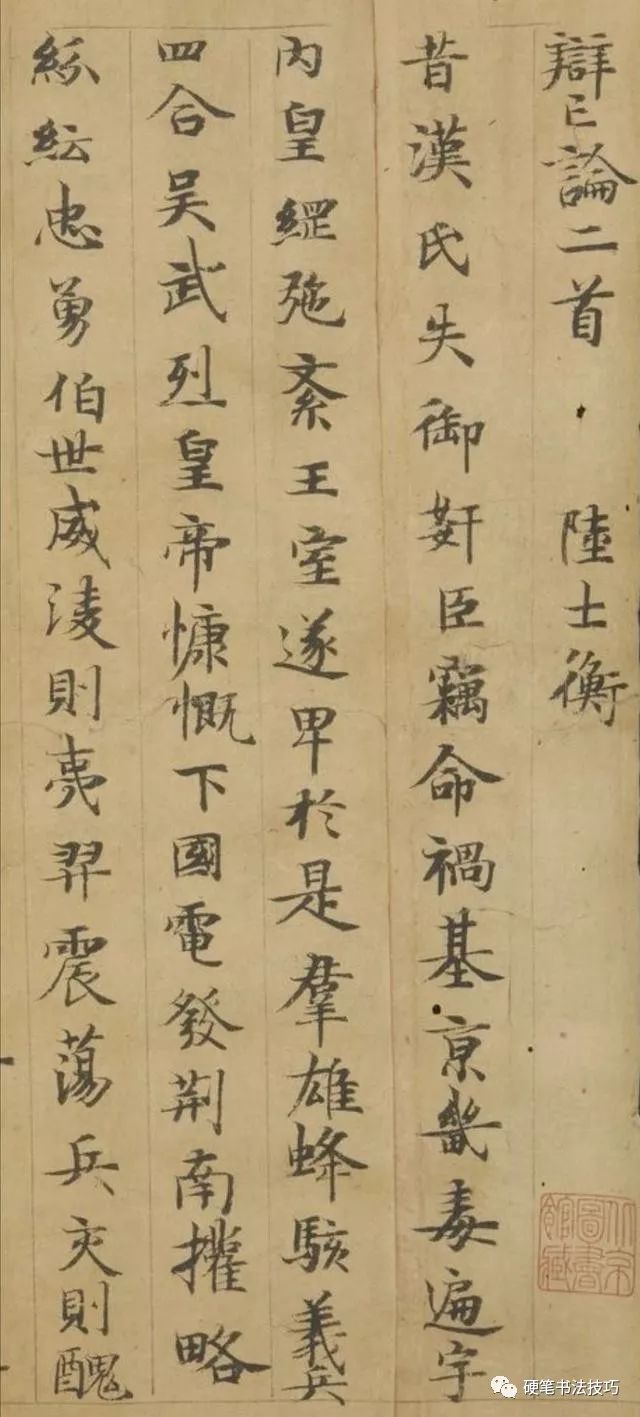 辯亡論二首 陸士衡
昔漢氏失御姧臣竊命禍基京畿毒遍宇
內皇綱弛紊王室遂卑於是羣雄蜂駭義兵
四合吴武烈皇帝慷慨下國電發荆南攉略
紛紜忠勇伯世威淩則夷羿震蕩兵交則醜
北京圖書館藏
硬笔书法技巧